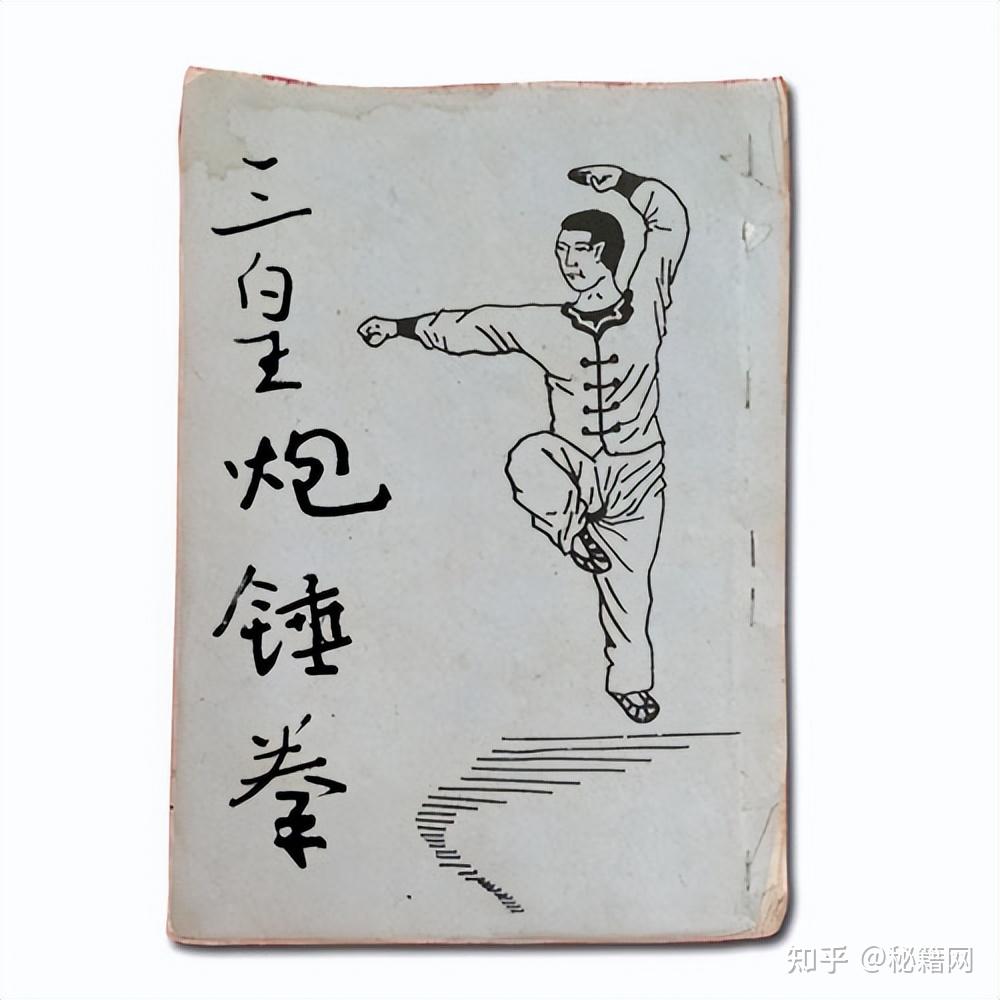 三皇炮锤拳
知乎 @秘籍网